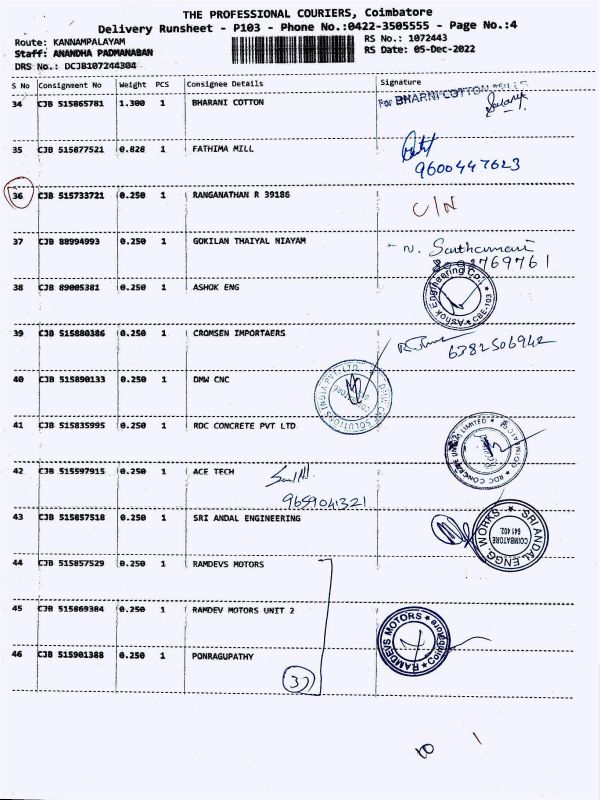 THE PROFESSIONAL COURIERS, Coimbatore
Delivery Runsheet - P103 - Phone No.:0422-3505555 - Page No.:4
Route: KANNAMPALAYAM RS No.: 1072443
Staff: ANANDHA PADMANABAN RS Date: 05-Dec-2022
DRS No.: DCJB107244304
S No Consignment No Weight PCS Consignee Details Signature
34 CJB 515865781 1.300 1 BHARANI COTTON For BHARNI COTTON MILLS
35 CJB 515877521 0.828 1 FATHIMA MILL
9600447623
36 CJB 515733721 0.250 1 RANGANATHAN R 39186 C/N
37 CJB 88994993 0.250 1 GOKILAN THAIYAL NIAYAM
38 CJB 89005381 0.250 1 ASHOK ENG Ashok Engineering Co. CBE-103
39 CJB 515880386 0.250 1 CROMSEN IMPORTAERS 6382506942
40 CJB 515890133 0.250 1 DMW CNC DMW CNC SOLUTIONS INDIA PVT LTD
41 CJB 515835995 0.250 1 RDC CONCRETE PVT LTD
42 CJB 515597915 0.250 1 ACE TECH
9659041321
43 CJB 515857518 0.250 1 SRI ANDAL ENGINEERING SRI ANDAL ENGG. WORKS COIMBATORE 641 402.
44 CJB 515857529 0.250 1 RAMDEVS MOTORS
45 CJB 515869384 0.250 1 RAMDEV MOTORS UNIT 2 RAMDEVS MOTORS Coimbatore
46 CJB 515901388 0.250 1 PONRAGUPATHY
37